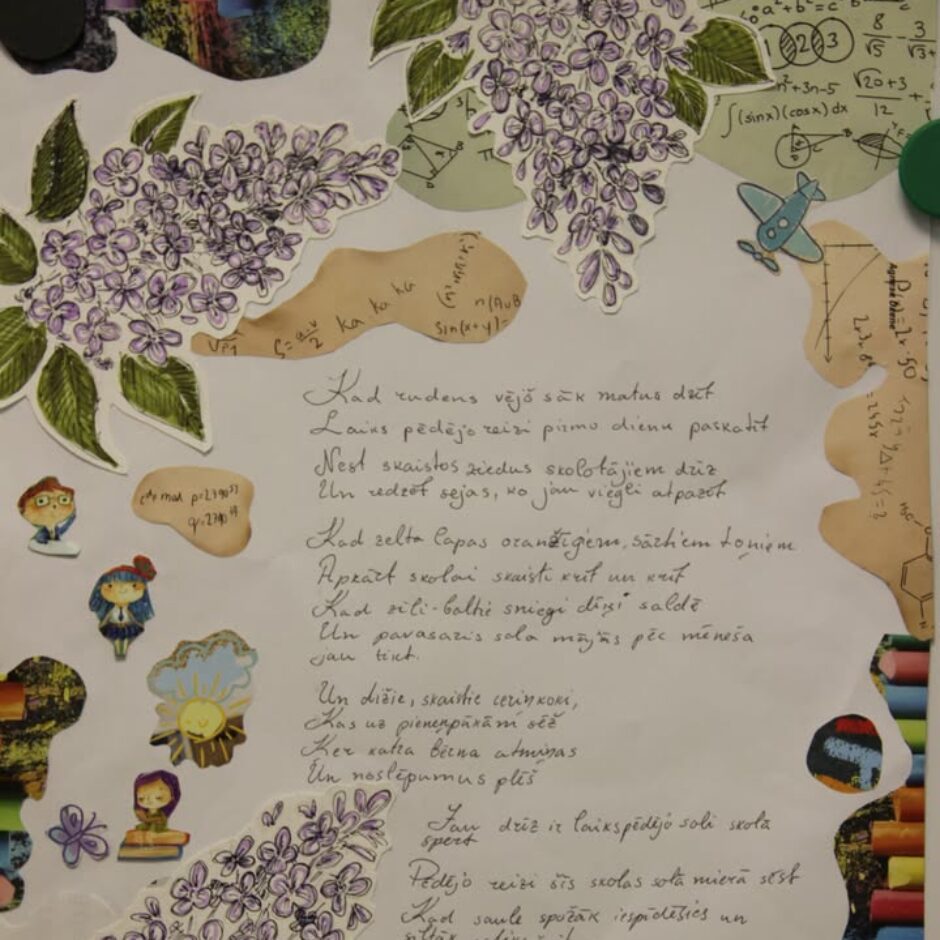 a²+b²=c²
1 2 3
8/√5 - 3/√3+
n²+3n-5
√20+3/12 +
∫(sinx)(cosx)dx
ka ka ka ha
n(A∪B
sin(x+y)=
Kad rudens vējš sāk matus dzīt
Laiks pēdējo reizi pirmo dienu paskatīt
Nest skaistos ziedus skolotājiem drīz
Un redzēt sejas, ko jau viegli atpazīt
Kad zelta lapas oranžīgiem, sārtiem toņiem
Apkārt skolai skaisti krīt un krīt
Kad zili-baltie sniegi dīķi saldē
Un pavasaris sola mājās pēc mēneša
jau tikt.
Un dižie, skaistie ceriņkoki,
Kas uz pieneņpūkām sēž
Ker katra bērna atmiņas
Un noslēpumus plēš
Jau drīz ir laiks pēdējo soli skolā
spert
Pēdējo reizi šīs skolas solā mierā sēst
Kad saule spožāk iespīdēsies un